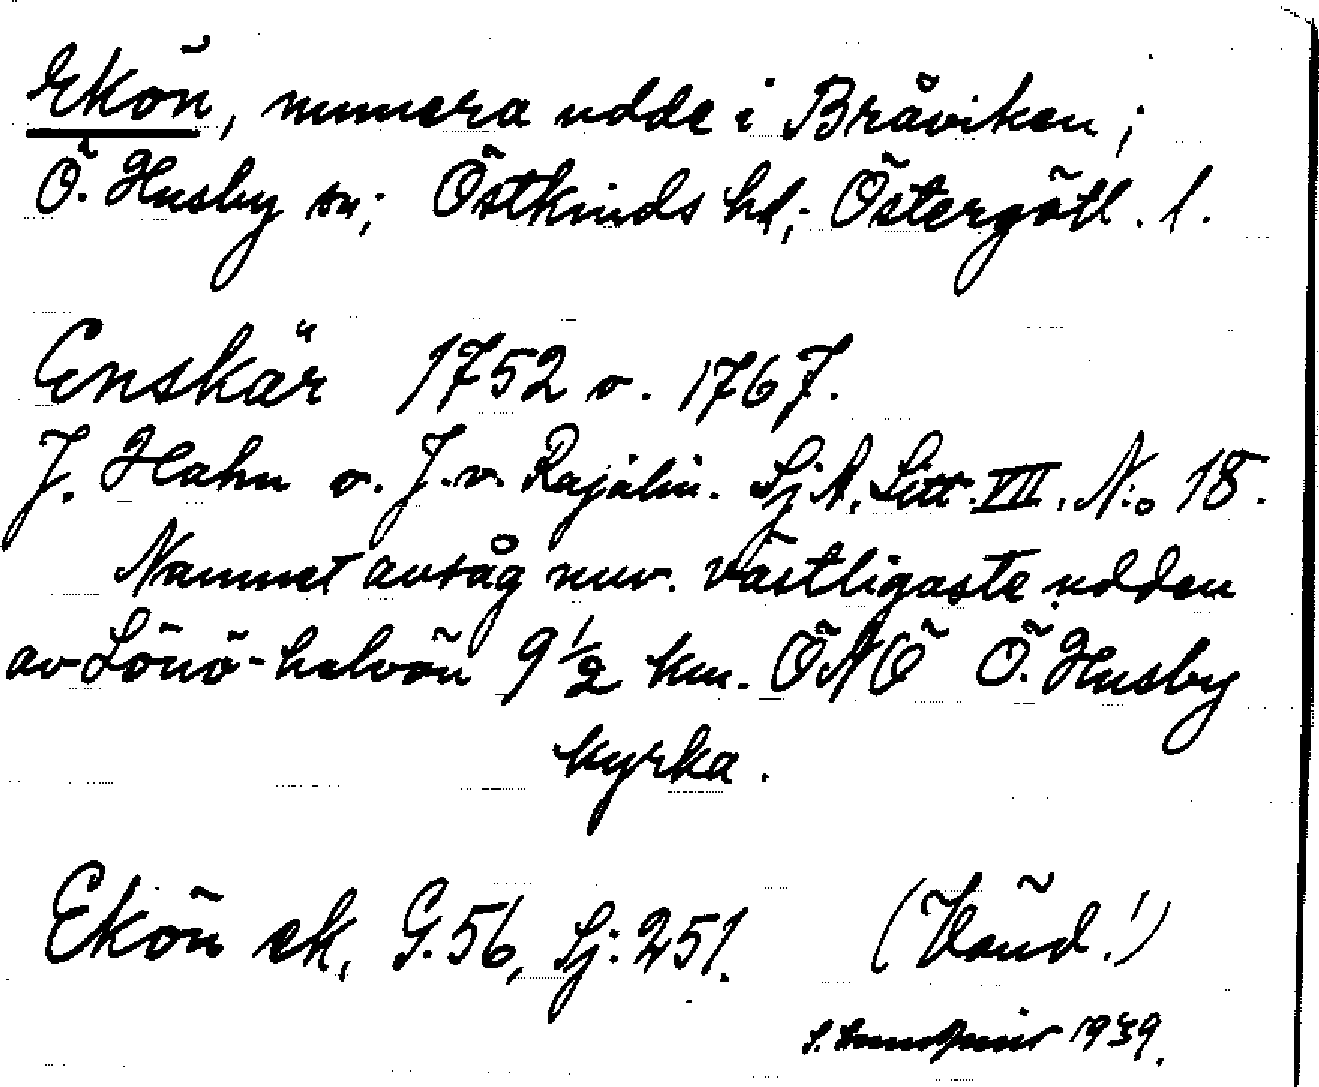 Ekön, numera udde i Bråviken;
Ö. Husby sn; Östkinds hd; Östergötl. l.
Enskär 1752 o. 1767.
J. Hahn o. J. v. Rajalin. SjA. Litt. VII. N:o 18.
Namnet avsåg nuv. västligaste udden
av Lönö-halvön 9 1/2 km. ÖNÖ Ö. Husby
kyrka.
Ekön ek, G. 56, Sj: 251. (Vänd!)
1939.